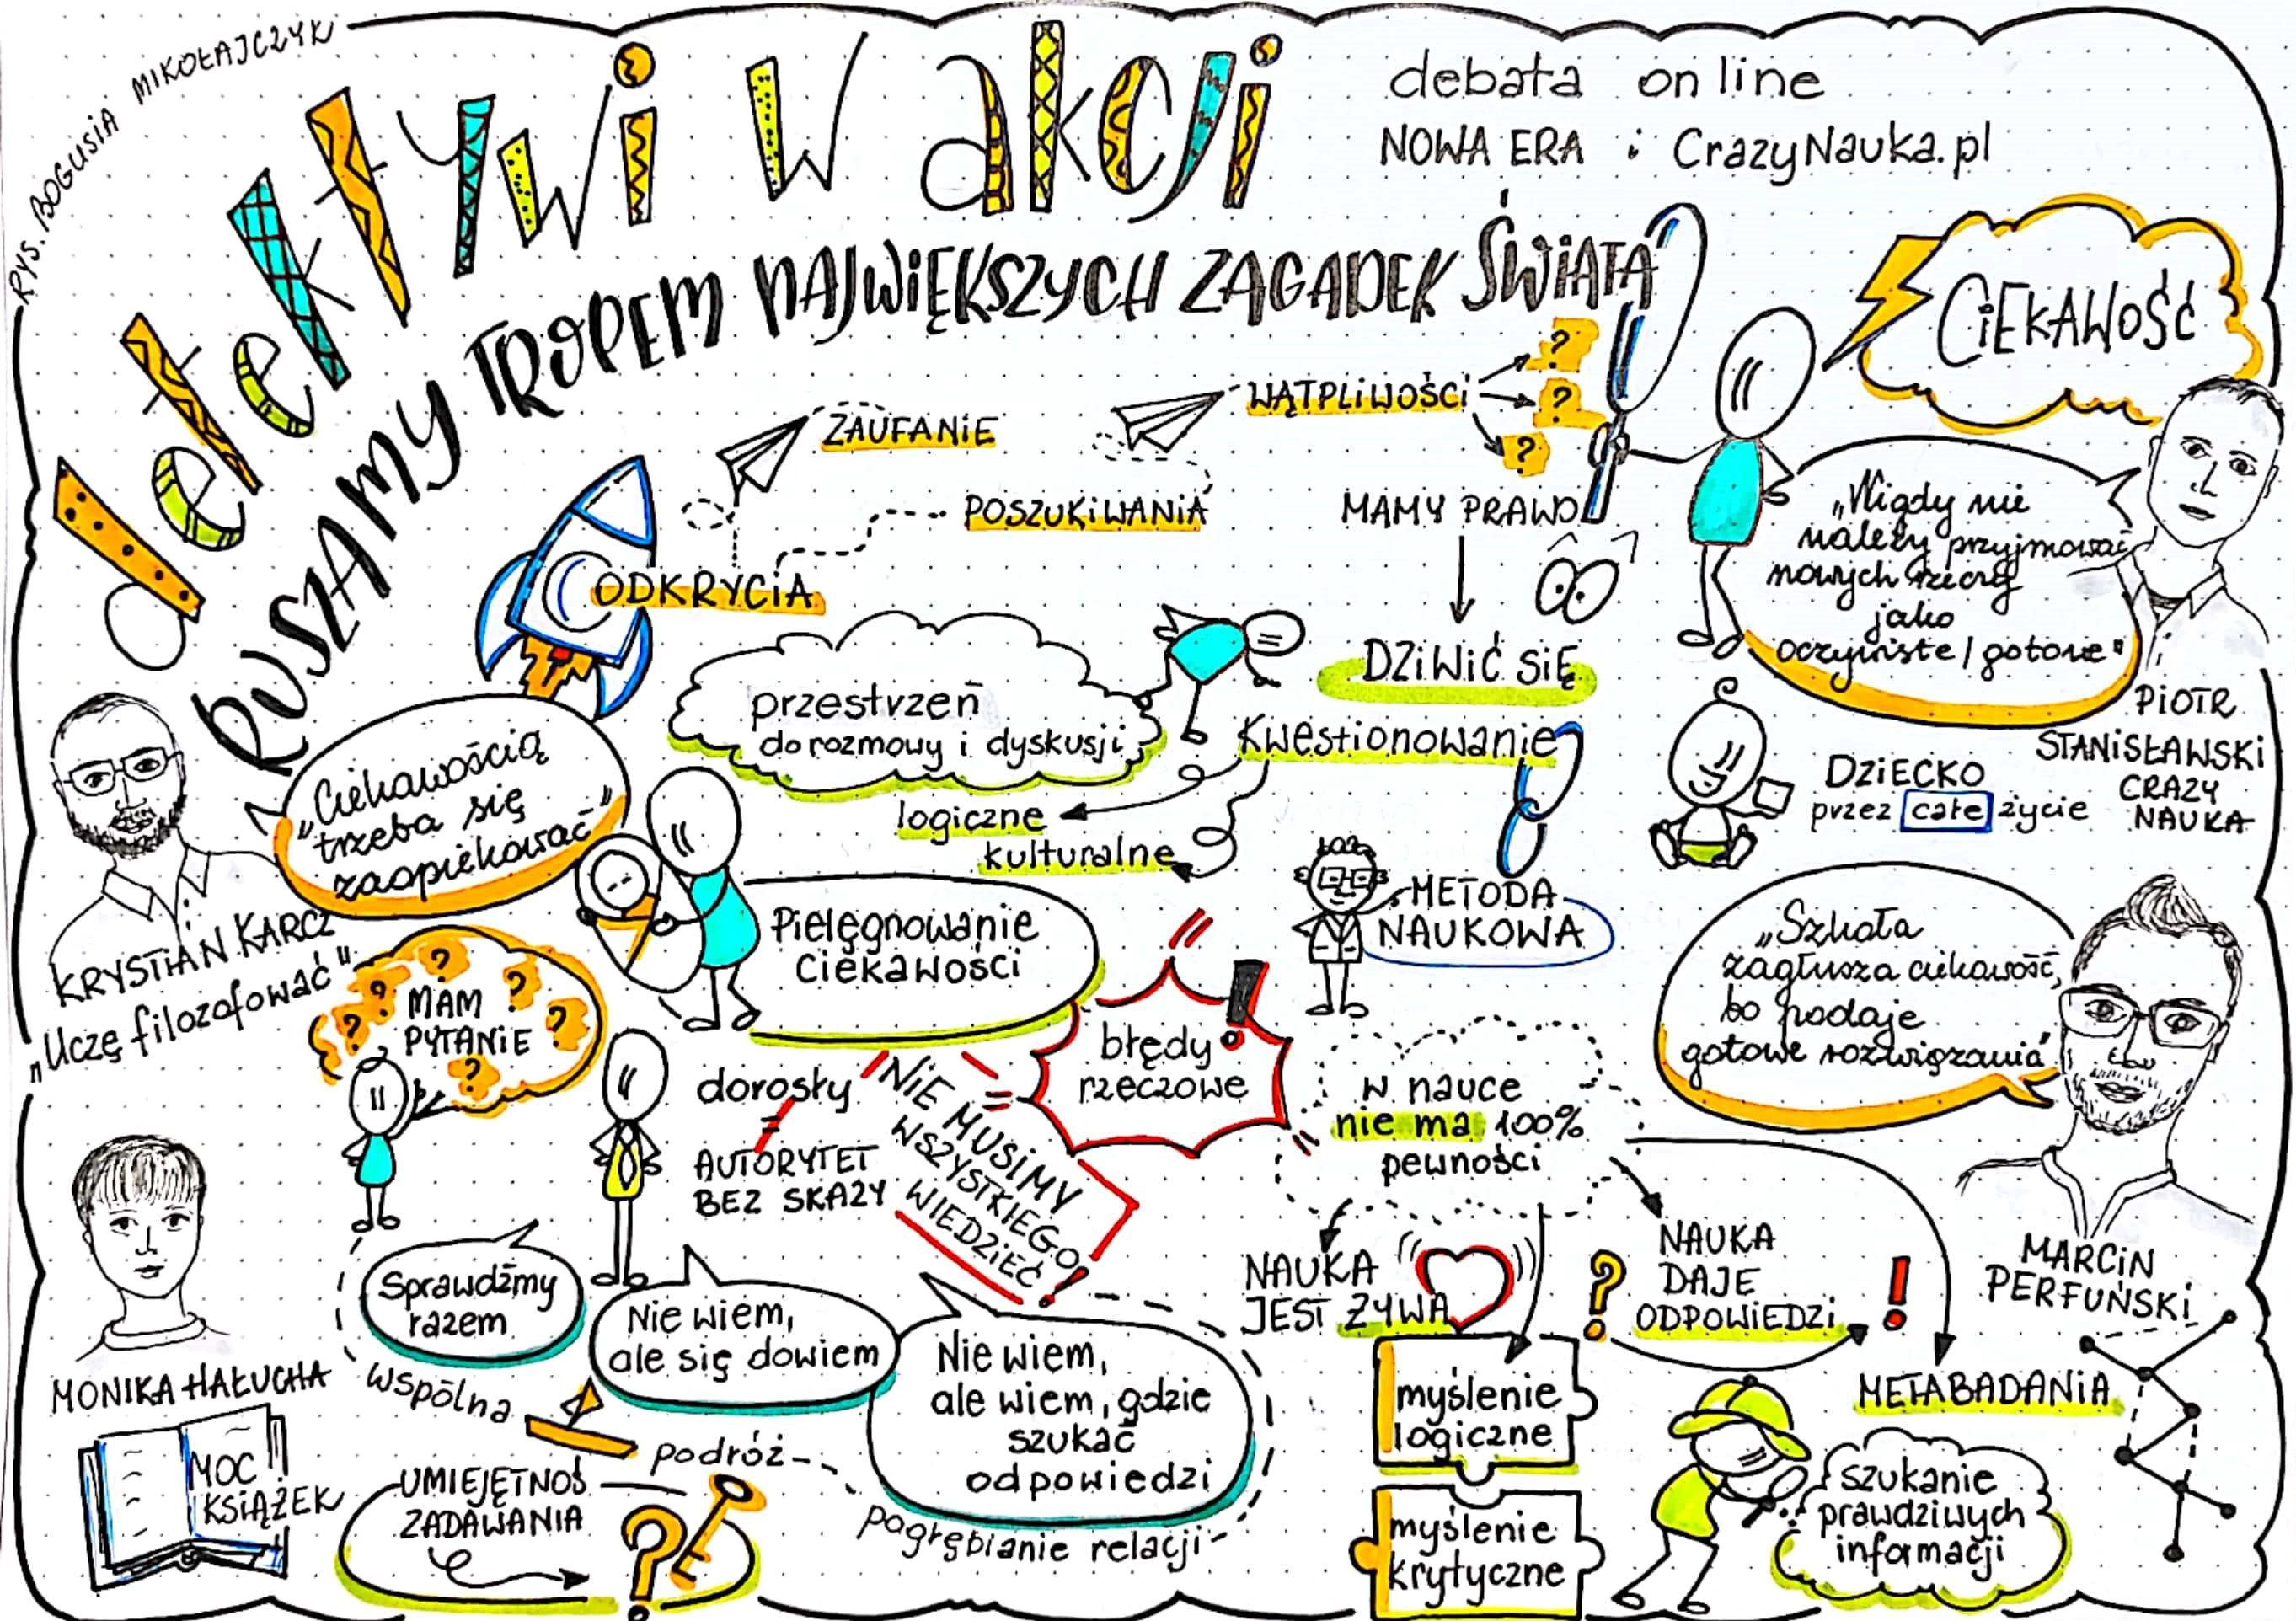 RYS. BOGUSIA MIKOŁAJCZYK
detektywi w akcji
RUSZAMY TROPEM NAJWIĘKSZYCH ZAGADEK ŚWIATA
debata on line
NOWA ERA i CrazyNauka.pl
CIEKAWOŚĆ
ZAUFANIE
WĄTPLIWOŚCI
?
?
?
POSZUKIWANIA
ODKRYCIA
MAMY PRAWO
DZIWIĆ SIĘ
„Nigdy nie
należy przyjmować
nowych rzeczy
jako
oczywiste / gotowe"
PIOTR
STANISŁAWSKI
CRAZY
NAUKA
„Ciekawością
trzeba się
zaopiekować"
KRYSTIAN KARCZ
„Uczę filozofować"
przestrzeń
do rozmowy i dyskusji
Kwestionowanie
logiczne
kulturalne
DZIECKO
przez całe życie
Pielęgnowanie
ciekawości
METODA
NAUKOWA
„Szkoła
zagłusza ciekawość,
bo podaje
gotowe rozwiązania"
MARCIN
PERFUŃSKI
? ? ?
? MAM
PYTANIE ?
?
dorosły
=
AUTORYTET
BEZ SKAZY
NIE MUSIMY
WSZYSTKIEGO
WIEDZIEĆ!
błędy
rzeczowe
!
w nauce
nie ma 100%
pewności
NAUKA
JEST ŻYWA
?
NAUKA
DAJE
ODPOWIEDZI
!
METABADANIA
myślenie
logiczne
myślenie
krytyczne
szukanie
prawdziwych
informacji
MONIKA HAŁUCHA
MOC
KSIĄŻEK
Sprawdźmy
razem
Nie wiem,
ale się dowiem
Nie wiem,
ale wiem, gdzie
szukać
odpowiedzi
wspólna
podróż
pogłębianie relacji
UMIEJĘTNOŚ
ZADAWANIA
?